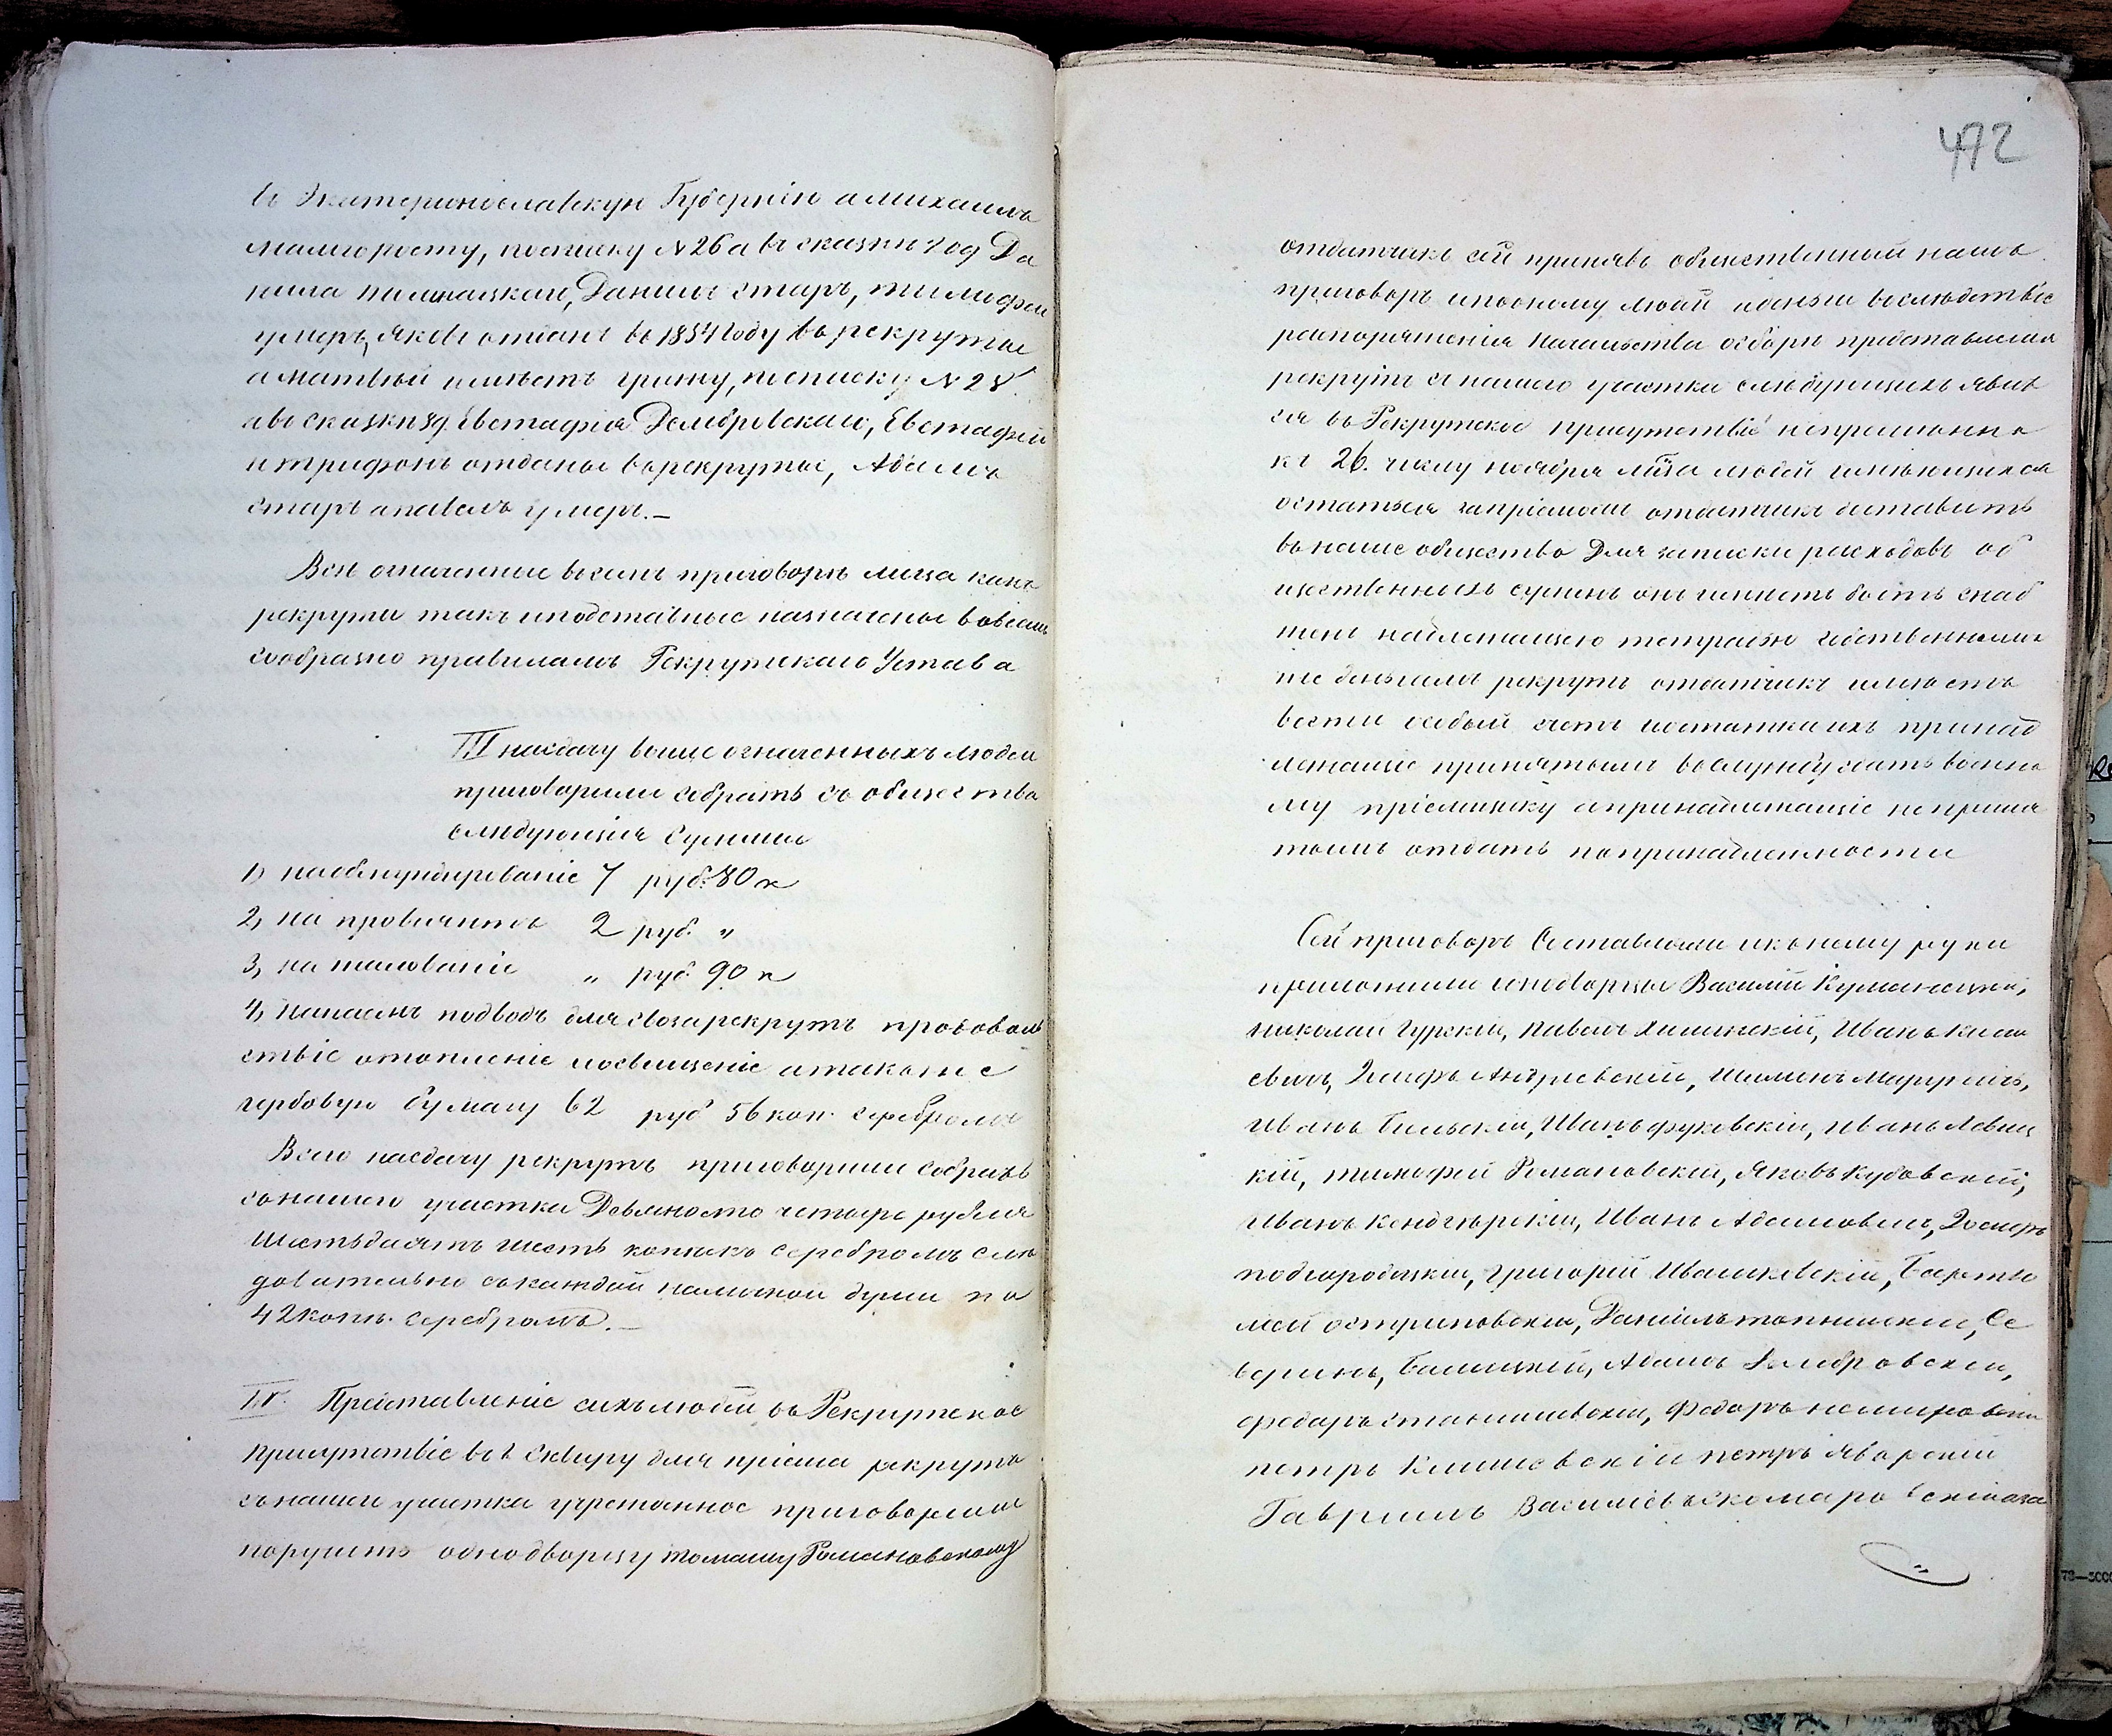 в Экатеринославскую Губернію а михаилъ
малчоросту, посписку N 26 а въ сказки 209 Да
нила Даниилъ старъ, тимофей
умеръ, яковъ отданъ во 1854 году въ рекруты
а матвѣй имѣетъ грижу, посписку N 28.
а во сказки 89 Евстафія Домбровскаго, Евстафій
и трифонъ отданы в рекруты, Адамъ
старъ а павелъ умеръ.—
Всѣ означенные в семъ приговорѣ лица какъ
рекруты такъ и подставные назначены во всемъ
сообразно правиламъ Рекрутскаго Устава
III на сдачу выше означенныхъ людей
приговорили собрать со общества
слѣдующія Суммы
1) на обмундированіе 7 руб. 80 к
2, на провіянтъ 2 руб. "
3, на жалованіе " руб 90 к
4, на наемъ подводъ для своза рекрутъ продоволь
ствіе отопленіе и освещеніе а также
гербовую бумагу 62 руб 56 коп. серебромъ
Всего на сдачу рекрутъ приговорили собрать
со нашего участка Девяносто четыре рубля
шестьдесятъ шесть копѣкъ серебромъ слѣ
довательно со каждой наличной души по
42 копѣ. серебромъ.—
IV. Представленіе сихъ людей въ Рекрутское
присутствіе в г Сквиру для пріема рекрутъ
съ нашего участка учрежданное приговорили
поручить однодворцу томашу Романовскому
472
отдатчикъ сей принявъ общественный нашъ
приговоръ и по оному людей и деньги во слѣдствіе
распоряженія началства о сборѣ представленія
рекрутъ с нашего участка слѣдующихъ явит
ся во Рекрутское присутствіе непремѣнно
къ 26. числу ноября м̃ца людей имѣющихся
остаться за пріемомъ отдатчикъ доставить
въ наше общество Для записки расходовъ об
щественныхъ суммъ онъ имѣетъ быть снаб
женъ надлежащею тетрадью собственными
же деньгами рекрутъ отдатчикъ имѣетъ
вести особый счетъ и остатки ихъ принад
лежащіе принятымъ во службу сдать военно
му пріемщику а принадлежащіе не приня
тымъ отдать по принадлежности
Сей приговоръ Составили и к оному руки
приложили однодворцы Василій Куманецкій,
николай гурскій, павелъ хилинскій, Иванъ
Іосифъ Андріевскій,
Иванъ Бильскій, Иванъ фуковскій, иванъ Левиц
кій, тимофей Романовскій, яковъ Кубовскій,
Иванъ Иванъ Адамовичъ, Іосифъ
подгородецкій, григорій Ивашкевскій, Бартло
мей Даніилъ Се
веринъ, Балицкій, Адамъ Домбровскій,
федоръ станишевскій, Федоръ немировскій
петръ Клишевскій петръ яворскій
Гавриилъ Василіевъ комаровскій